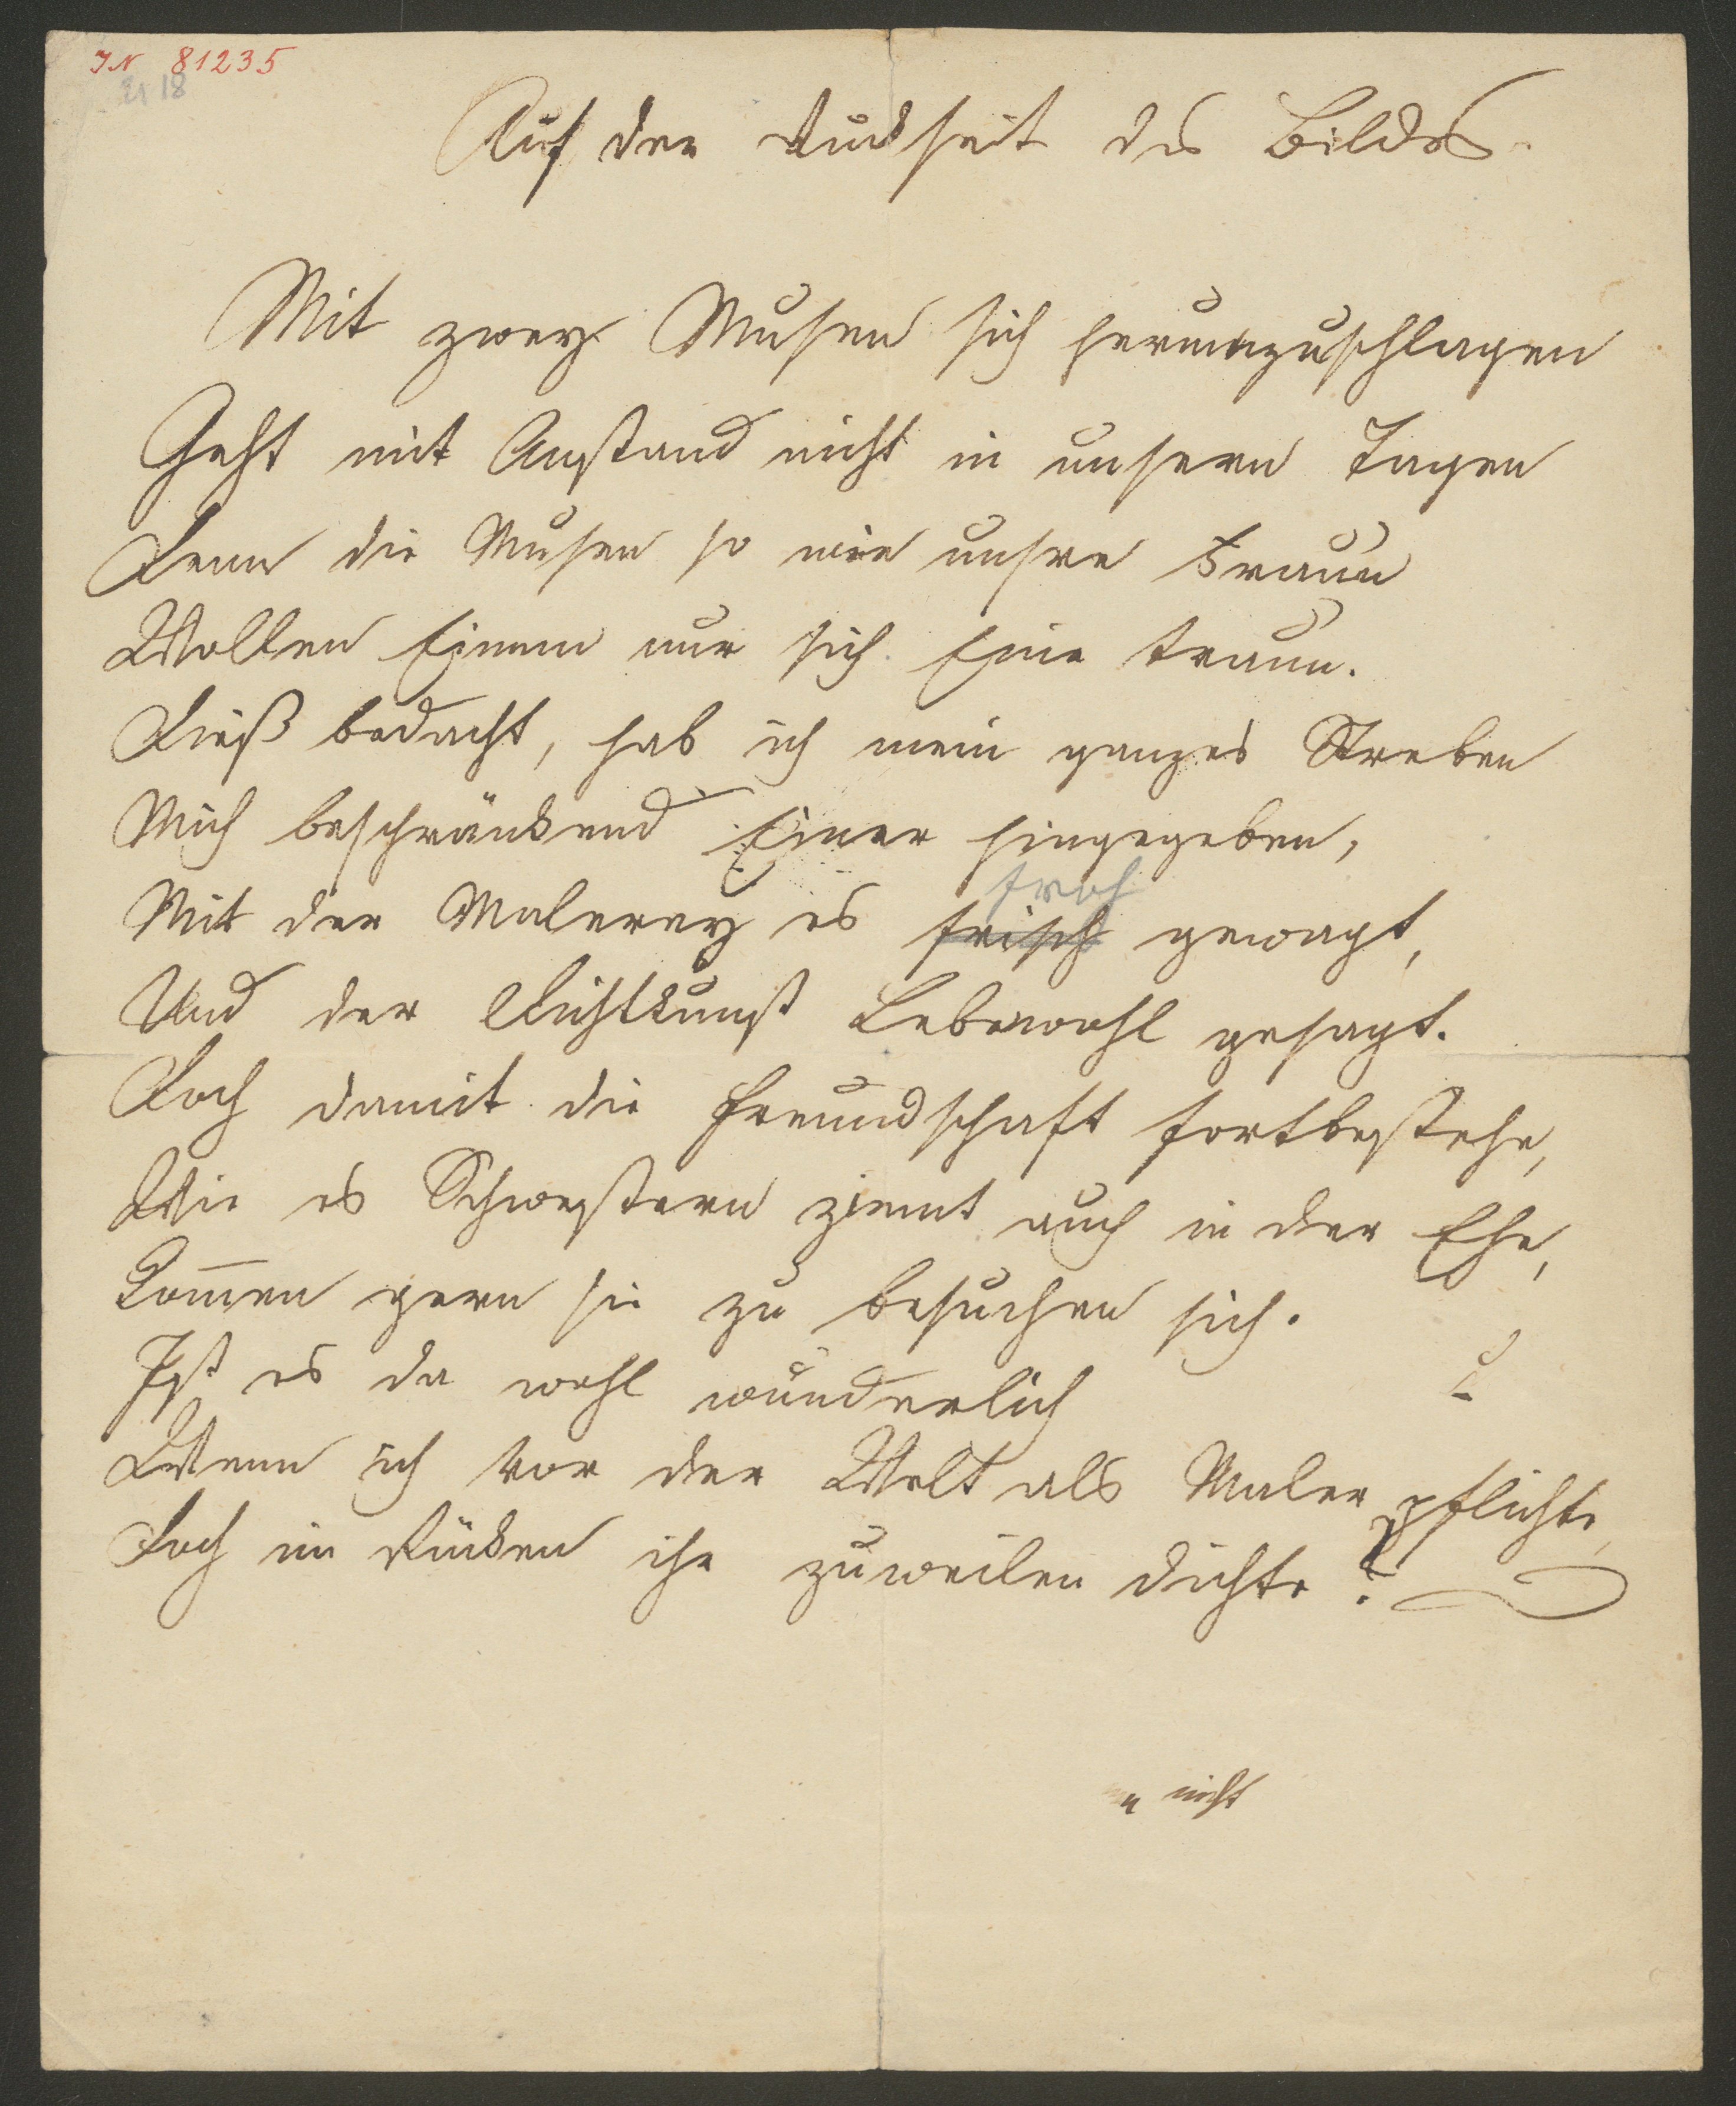 IN 81235
Auf der Rückseite des Bildes.
Mit zwey Musen sich herumzuschlagen
Geht mit Anstand nicht in unsern Tagen
Denn die Musen so wie unsre Fraun
Wollen Einem nur sich Eine traun.
Dieß bedacht, hab ich mein ganzes Streben
Mich beschränkend Einer hingegeben,
froh
Mit der Malerey es frisch gewagt,
Und der Dichtkunst Lebewohl gesagt.
Doch damit die Freundschaft fortbestehe,
Wie es Schwestern ziemt auch in der Ehe,
Kommen gern sie zu besuchen sich.
Ist es da wohl wunderlich
Wenn ich vor der Welt als Maler pflichte,
Doch im Rücken ihr zuweilen dichte?
nicht